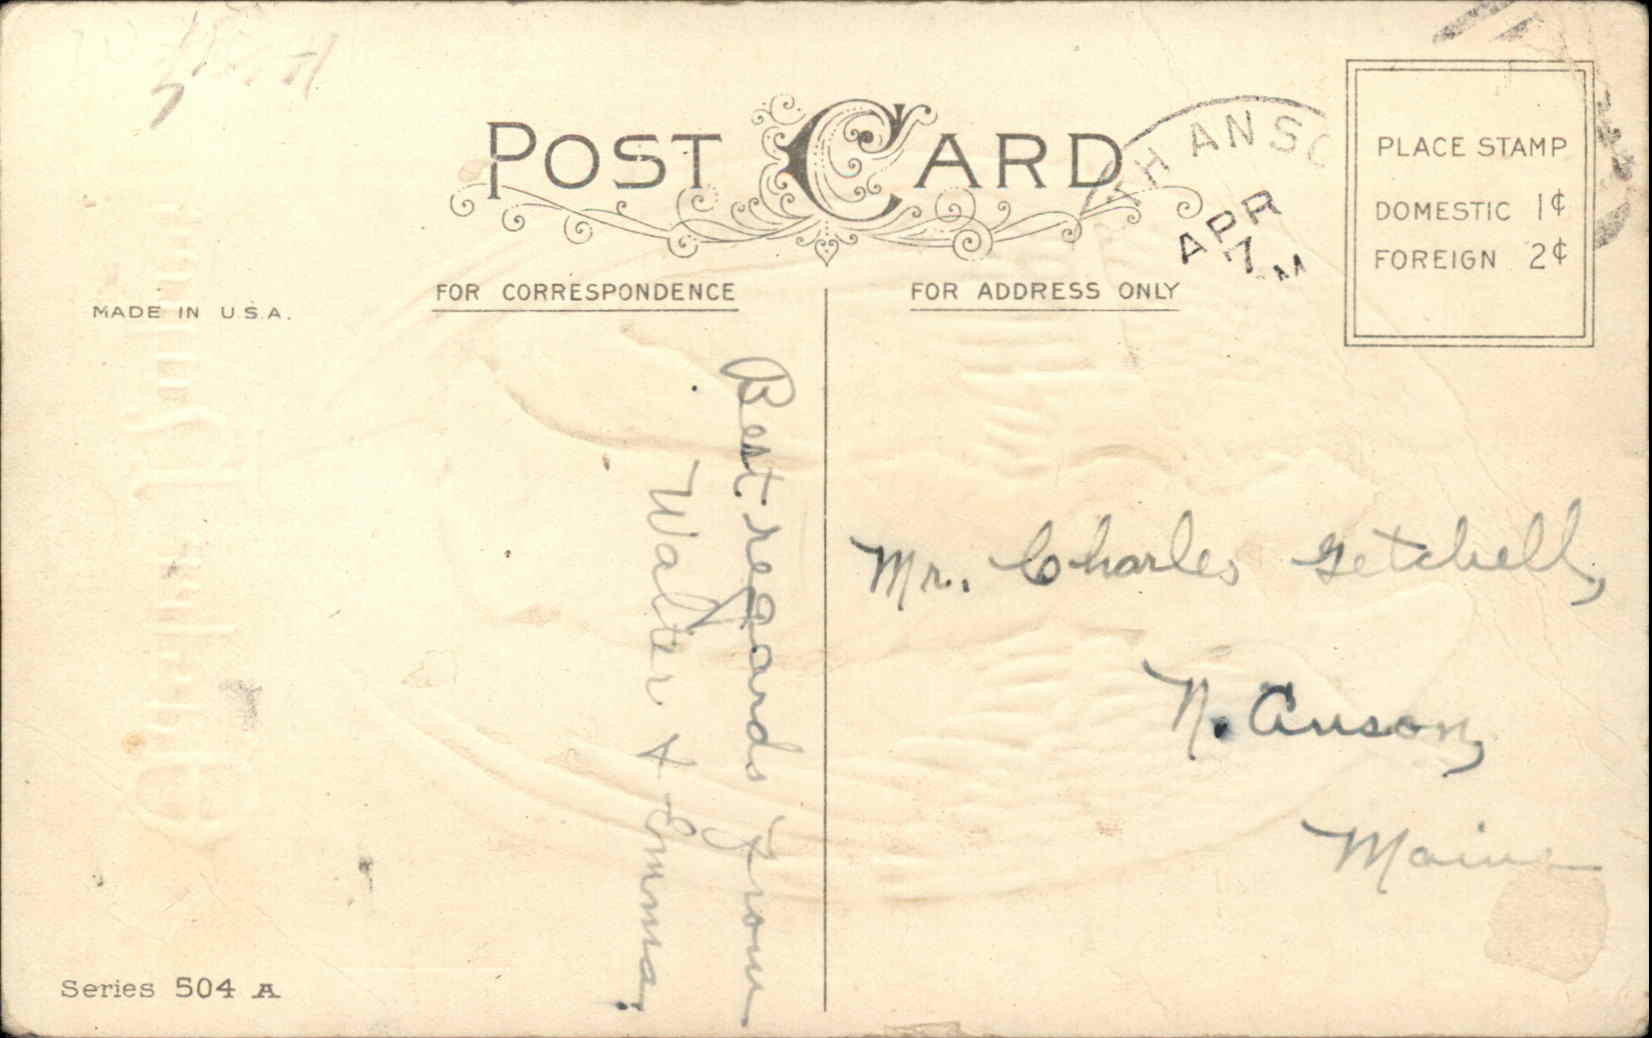 POST CARD
TH ANSO
APR
7
M
PLACE STAMP
DOMESTIC 1¢
FOREIGN 2¢
FOR CORRESPONDENCE
FOR ADDRESS ONLY
MADE IN U.S.A.
Best regards from
Walter & Emma.
Mr. Charles Getchell,
N. Anson,
Maine
Series 504 A